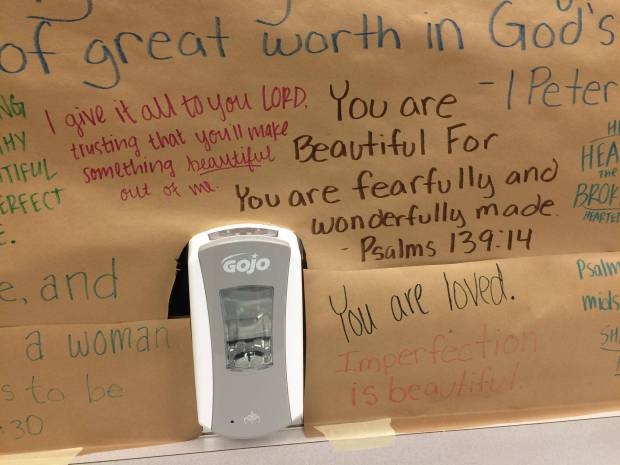 of great worth in God's
- 1 Peter
I give it all to you LORD.
trusting that you'll make
something beautiful
out of me.
You are
Beautiful For
You are fearfully and
wonderfully made.
- Psalms 139:14
HEA
THE
BROK
HEARTED
NG
HY
TIFUL
ERFECT
E.
e, and
a woman
s to be
:30
GOJO
You are loved.
Imperfection
is beautiful.
Psalm
mids
SH